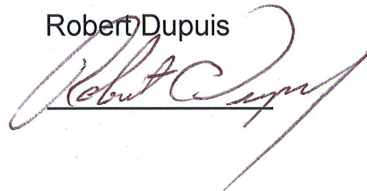 Robert Dupuis
Robert Dupuis